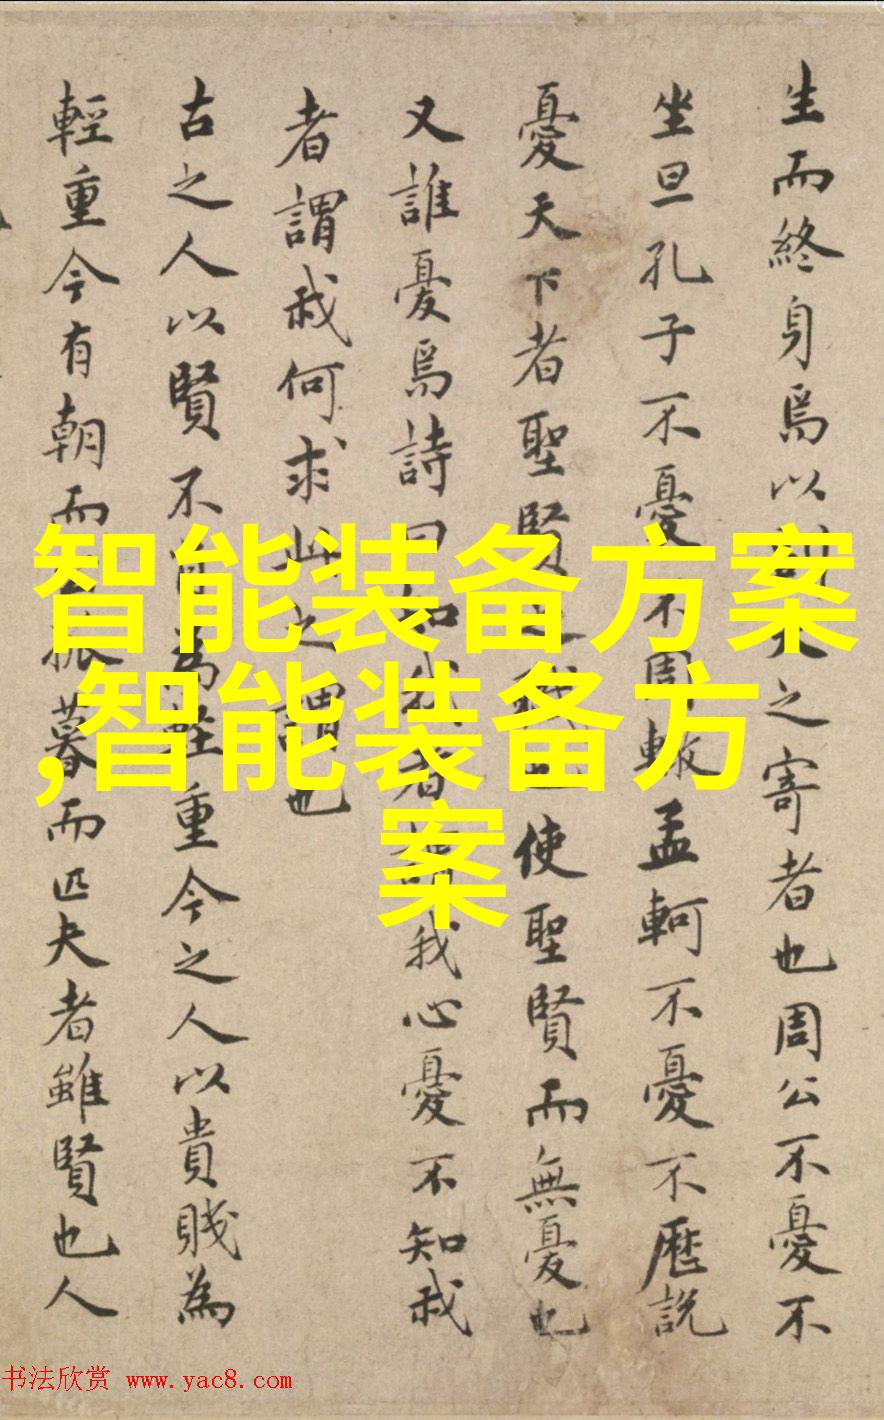 生而終身焉以 之寄者也周公不憂不
坐旦孔子不憂不周轍孟軻不憂不歷說
憂天下者聖賢之 使聖賢而無憂也
又誰憂焉詩曰知我者謂我心憂不知我
者謂我何求此之謂也
古之人以賢不肖為輕重今之人以貴賤為
輕重今有朝而 暮而匹夫者雖賢也人
智能装备方案
,智能装备方
案
书法欣赏 www.yac8.com